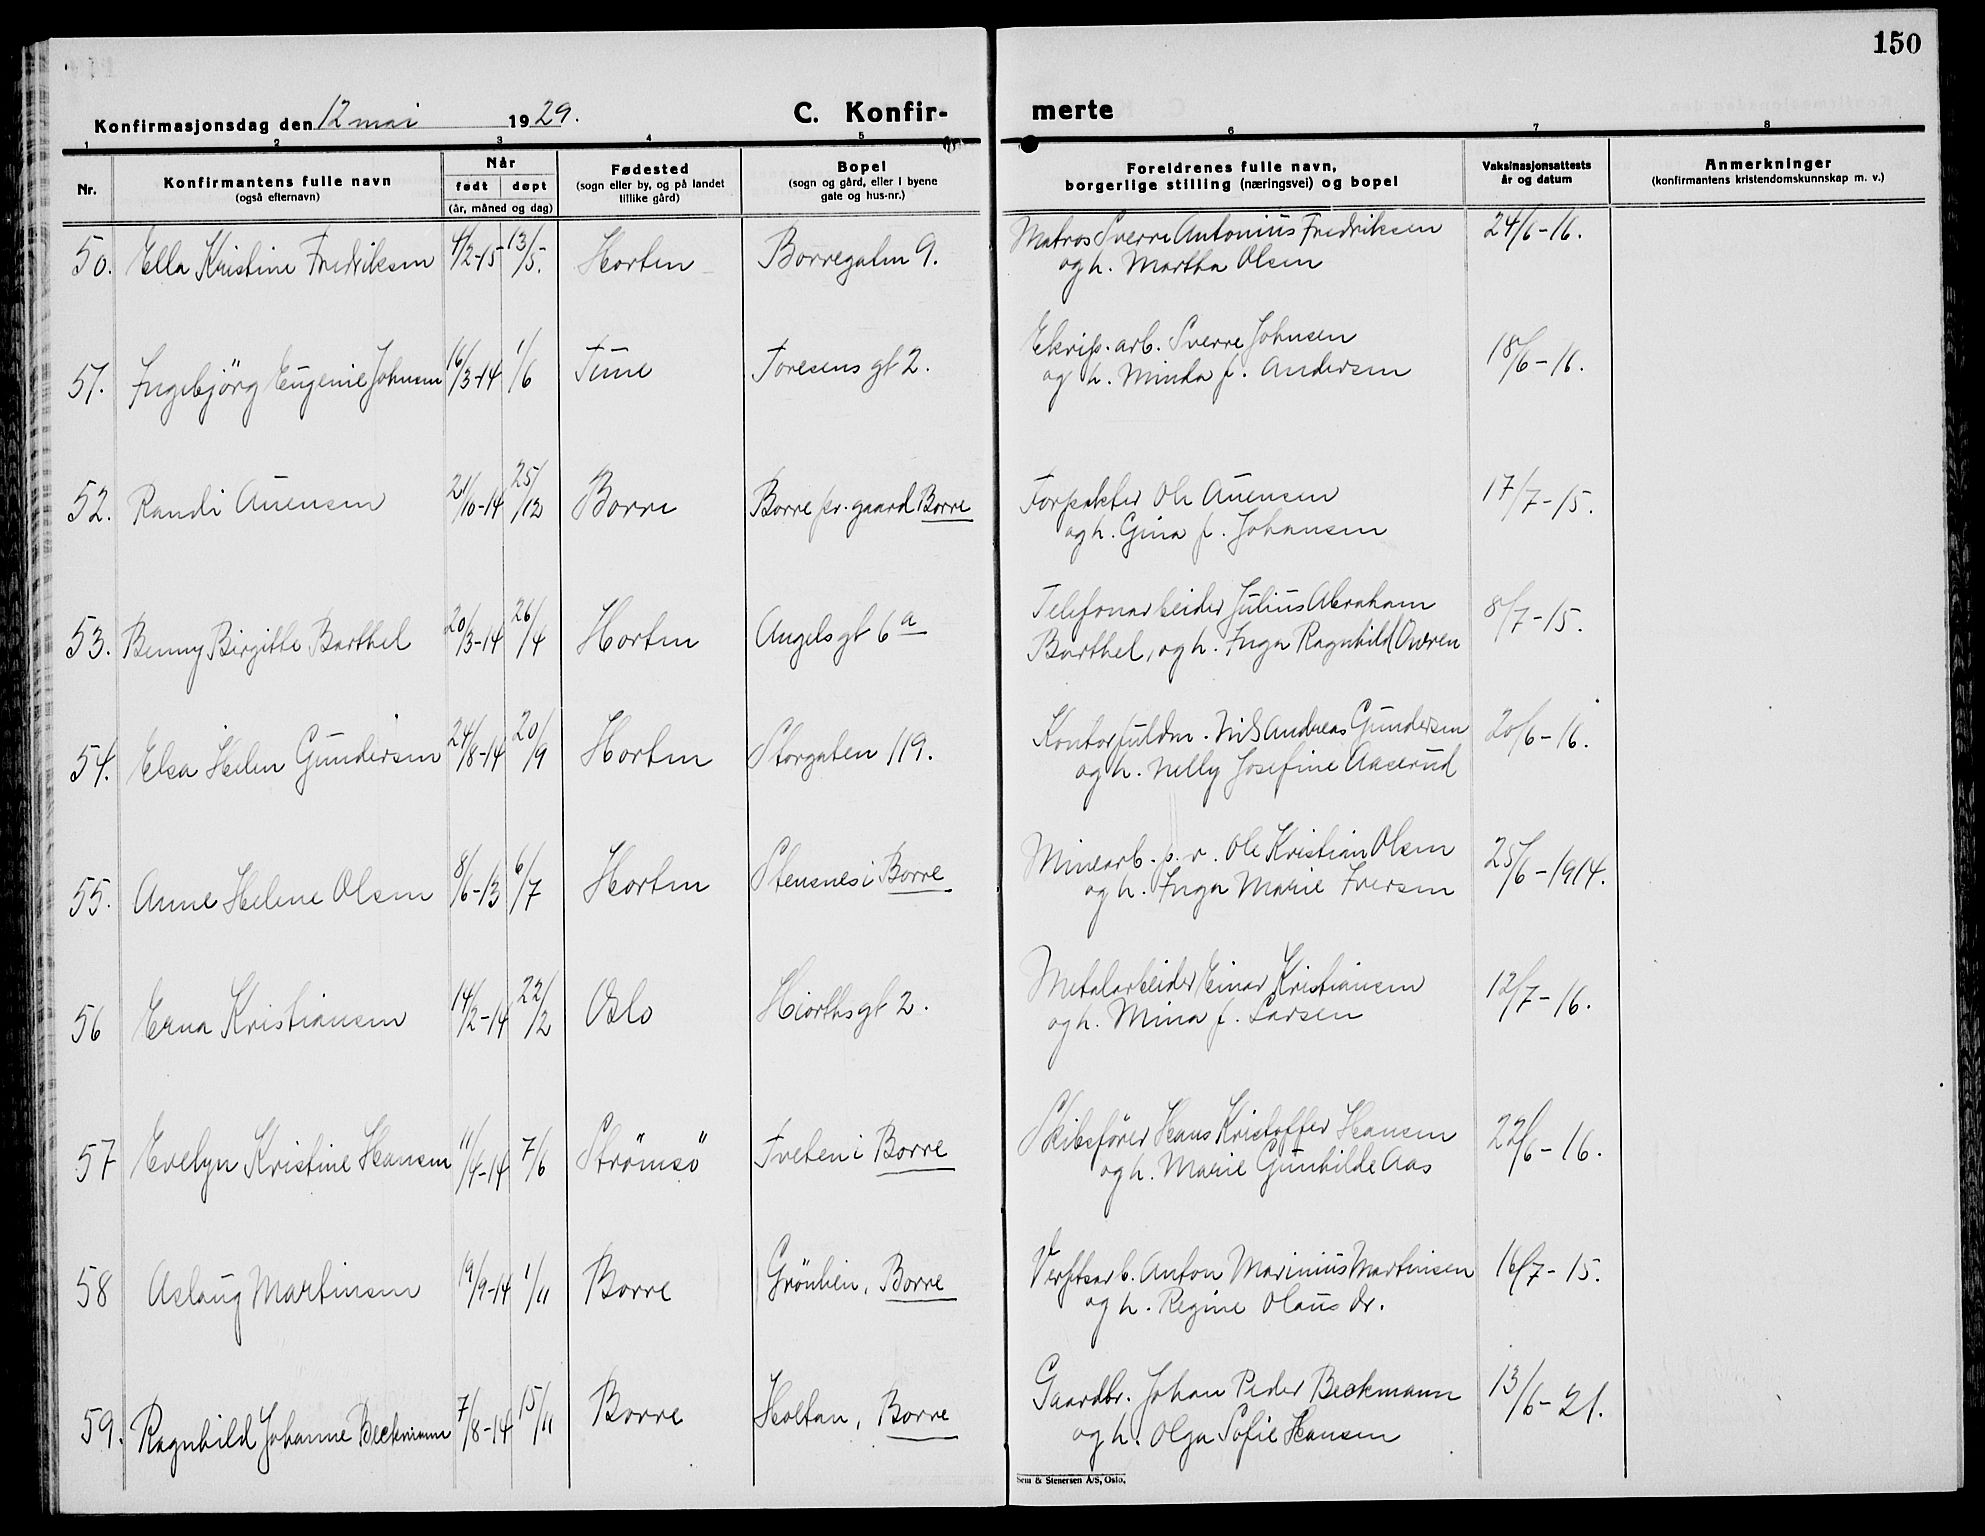 150
Konfirmasjonsdag den 12 mai 1929.
C. Konfir-
merte
1 2 3 4 5 6 7 8
Nr.
Konfirmantens fulle navn
(også efternavn)
Når
født døpt
(år, måned og dag)
Fødested
(sogn eller by, og på landet
tillike gård)
Bopel
(sogn og gård, eller i byene
gate og hus-nr.)
Foreldrenes fulle navn,
borgerlige stilling (næringsvei) og bopel
Vaksinasjonsattests
år og datum
Anmerkninger
(konfirmantens kristendomskunnskap m. v.)
50. Ella Kristine Fredriksen 4/2-15 13/5. Horten Borregaten 9. Matros Sverre Antonius Fredriksen 24/6-16.
og h. Martha Olsen
51. Ingebjörg Eugenie Johnsen 16/3-14 1/6 Tune Toresens gt 2. Ekvip. arb. Sverre Johnsen 18/6-16.
og h. Minda f. Andersen
52. Randi Auensen 21/10-14 25/12 Borre Borre pr. gaard Borre Forpakter Ole Auensen 17/7-15.
og h. Gina f. Johansen
53. Benny Birgitte Barthel 20/3-14 26/4 Horten Angels gt 6a Telefonarbeider Julius Abraham 8/7-15.
Barthel, og h. Inga Ragnhild Owren
54. Elsa Helen Gundersen 24/8-14 20/9 Horten Storgaten 119. Kontorfuldm. Nils Andreas Gundersen 20/6-16.
og h. Nelly Josefine Aaserud
55. Anne Helene Olsen 8/6-13 6/7 Horten Stensnes i Borre Minearb. p. v. Ole Kristian Olsen 25/6-1914.
og h. Inga Marie Iversen
56 Erna Kristiansen 14/2-14 22/2 Oslo Hiorthsgt 2. Metalarbeider Einar Kristiansen 12/7-16.
og h. Mina f. Larsen
57 Evelyn Kristine Hansen 11/4-14 7/6 Strömsö Tveten i Borre Skibsfører Hans Kristoffer Hansen 22/6-16.
og h. Marie Gunhilde Aas
58 Aslaug Martinsen 19/9-14 1/11 Borre Grönlien, Borre Verftsarb. Anton Marinius Martinsen 16/7-15.
og h. Regine Olaus dr.
59. Ragnhild Johanne Beckmann 7/8-14 15/11 Borre Holtan, Borre Gaardbr. Johan Peder Beckmann 13/6-21.
og h. Olga Sofie Hansen
Sem & Stenersen A/S, Oslo.